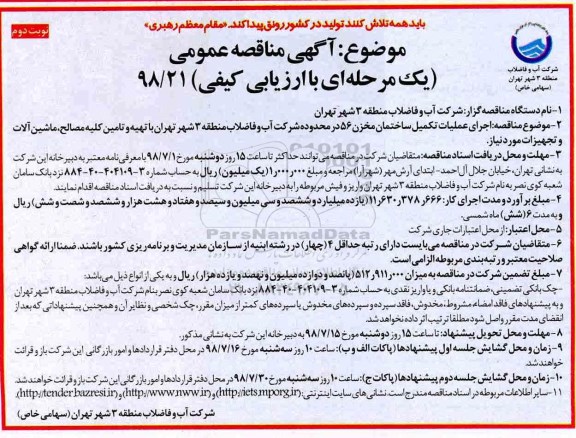 باید همه تلاش کنند تولید در کشور رونق پیدا کند. «مقام معظم رهبری»
نوبت دوم
موضوع: آگهی مناقصه عمومی
(یک مرحله‌ای با ارزیابی کیفی) ۹۸/۲۱
شرکت آب و فاضلاب
منطقه ۳ شهر تهران
(سهامی خاص)
۱-نام دستگاه مناقصه گزار: شرکت آب و فاضلاب منطقه ۳ شهر تهران
۲-موضوع مناقصه: اجرای عملیات تکمیل ساختمان مخزن ۵۶ در محدوده شرکت آب و فاضلاب منطقه ۳ شهر تهران با تهیه و تامین کلیه مصالح، ماشین آلات
و تجهیزات مورد نیاز.
۳-مهلت و محل دریافت اسناد مناقصه: متقاضیان شرکت در مناقصه می‌توانند حداکثر تا ساعت ۱۵ روز دوشنبه مورخ ۹۸/۷/۱ با معرفی نامه معتبر به دبیرخانه این شرکت
به نشانی تهران، خیابان جلال آل احمد- ابتدای آرش مهر (شهرآرا) مراجعه و مبلغ ۱٫۰۰۰٫۰۰۰ (یک میلیون) ریال به حساب شماره ۳-۴۰۴۱۰۹-۴۰-۸۸۴ نزد بانک سامان
شعبه کوی نصر به نام شرکت آب و فاضلاب منطقه ۳ شهر تهران واریز و فیش مربوطه را به دبیرخانه این شرکت تسلیم و نسبت به دریافت اسناد مناقصه اقدام نمایند.
۴-مبلغ برآورد و مدت اجرای کار: ۱۱٫۶۳۰٫۳۷۸٫۶۶۶ (یازده میلیارد و ششصد و سی میلیون و سیصد و هفتاد و هشت هزار و ششصد و شصت و شش) ریال
و به مدت ۶ (شش) ماه شمسی.
۵-محل اعتبار: از محل اعتبارات جاری شرکت
۶-متقاضیان شرکت در مناقصه می‌بایست دارای رتبه حداقل ۴ (چهار) در رشته ابنیه از سازمان مدیریت و برنامه ریزی کشور باشند. ضمنا ارائه گواهی
صلاحیت معتبر و رتبه بندی مربوطه الزامی است.
۷-مبلغ تضمین شرکت در مناقصه به میزان ۵۱۲٫۹۱۱٫۰۰۰ (پانصد و دوازده میلیون و نهصد و یازده هزار) ریال و به یکی از انواع ذیل می‌باشد:
-چک بانکی تضمینی، ضمانتنامه بانکی و یا واریز نقدی به حساب شماره ۳-۴۰۴۱۰۹-۴۰-۸۸۴ نزد بانک سامان شعبه کوی نصر بنام شرکت آب و فاضلاب منطقه ۳ شهر تهران
و به پیشنهادهای فاقد امضاء مشروط، مخدوش، فاقد سپرده و سپرده‌های مخدوش یا سپرده‌های کمتر از میزان مقرر، چک شخصی و نظایر آن و همچنین پیشنهاداتی که بعد از
انقضای مدت مقرر واصل شود مطلقا ترتیب اثر داده نخواهد شد.
۸-مهلت و محل تحویل پیشنهاد: تا ساعت ۱۵ روز دوشنبه مورخ ۹۸/۷/۱۵ به دبیرخانه این شرکت به نشانی مذکور.
۹-زمان و محل گشایش جلسه اول پیشنهادها (پاکات الف و ب): ساعت ۱۰ روز سه‌شنبه مورخ ۹۸/۷/۱۶ در محل دفتر قراردادها و امور بازرگانی این شرکت باز و قرائت
خواهند شد.
۱۰-زمان و محل گشایش جلسه دوم پیشنهادها (پاکات ج): ساعت ۱۰ روز سه‌شنبه مورخ ۹۸/۷/۳۰ در محل دفتر قراردادها و امور بازرگانی این شرکت باز و قرائت خواهند شد.
۱۱-سایر اطلاعات مربوطه در اسناد مناقصه مندرج است. نشانی‌های سایت اینترنتی: (http://iets.mporg.ir) و (http://www.nww.ir) و (http://tender.bazresi.ir)
شرکت آب و فاضلاب منطقه ۳ شهر تهران (سهامی خاص)